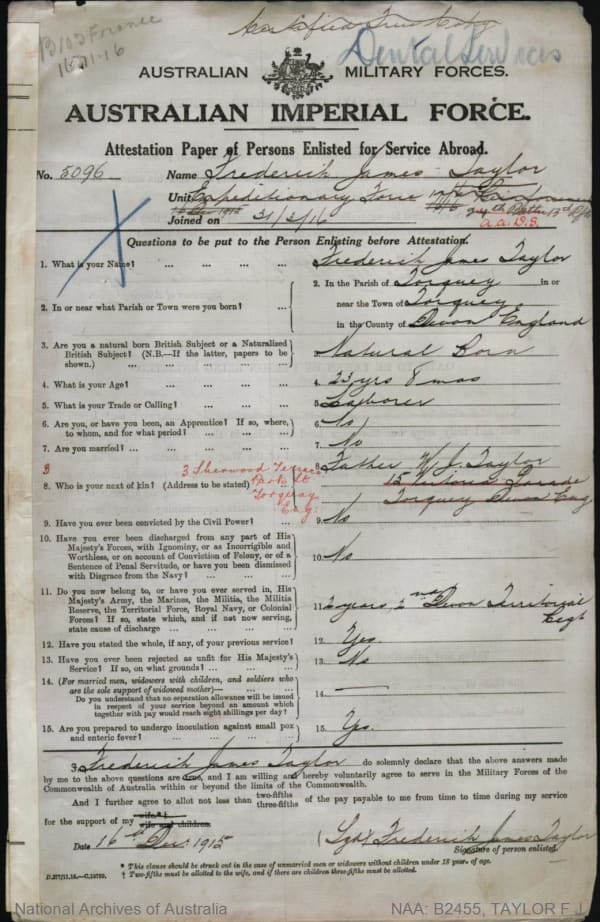 Certified True Copy
B103 France
16.11.16
Dental Services
AUSTRALIAN MILITARY FORCES.
AUSTRALIAN IMPERIAL FORCE.
Attestation Paper of Persons Enlisted for Service Abroad.
No. 5096 Name Frederick James Taylor
Unit Expeditionary Force
Joined on 31/3/16
a.a.D.S.
Questions to be put to the Person Enlisting before Attestation.
1. What is your Name? ... ... ... ... Frederick James Taylor
2. In or near what Parish or Town were you born? ...
2. In the Parish of Torquay in or
near the Town of Torquay
in the County of Devon England
3. Are you a natural born British Subject or a Naturalized
British Subject? (N.B.—If the latter, papers to be
shown.) ... ... ... ... ...
Natural Born
4. What is your Age? ... ... ... ... 4. 23 yrs 8 mos
5. What is your Trade or Calling? ... ... ... 5. Laborer
6. Are you, or have you been, an Apprentice? If so, where,
to whom, and for what period? ... ... ...
6. No
7. Are you married? ... ... ... ... ... 7. No
3 Sherwood Terrace
Park St
Torquay
Eng.
8. Who is your next of kin? (Address to be stated)
8. Father W. J. Taylor
15 Victoria Parade
Torquay Devon Eng
9. Have you ever been convicted by the Civil Power? ... 9. No
10. Have you ever been discharged from any part of His
Majesty's Forces, with Ignominy, or as Incorrigible and
Worthless, or on account of Conviction of Felony, or of a
Sentence of Penal Servitude, or have you been dismissed
with Disgrace from the Navy? ... ... ...
10. No
11. Do you now belong to, or have you ever served in, His
Majesty's Army, the Marines, the Militia, the Militia
Reserve, the Territorial Force, Royal Navy, or Colonial
Forces? If so, state which, and if not now serving,
state cause of discharge ... ... ... ...
11. 2 years, 2nd Devon Territorial
Regt
12. Have you stated the whole, if any, of your previous service? 12. Yes.
13. Have you ever been rejected as unfit for His Majesty's
Service? If so, on what grounds? ... ... ...
13. No
14. (For married men, widowers with children, and soldiers who
are the sole support of widowed mother)—
Do you understand that no separation allowance will be issued
in respect of your service beyond an amount which
together with pay would reach eight shillings per day?
14. —
15. Are you prepared to undergo inoculation against small pox
and enteric fever? ... ... ... ...
15. Yes.
I, Frederick James Taylor do solemnly declare that the above answers made
by me to the above questions are true, and I am willing and hereby voluntarily agree to serve in the Military Forces of the
Commonwealth of Australia within or beyond the limits of the Commonwealth.
And I further agree to allot not less than two-fifths three-fifths of the pay payable to me from time to time during my service
for the support of my wife*† wife and children
Date 16th Dec. 1915 (Sgd) Frederick James Taylor
Signature of person enlisted.
* This clause should be struck out in the case of unmarried men or widowers without children under 18 years of age.
† Two-fifths must be allotted to the wife, and if there are children three-fifths must be allotted.
National Archives of Australia
NAA: B2455, TAYLOR F J